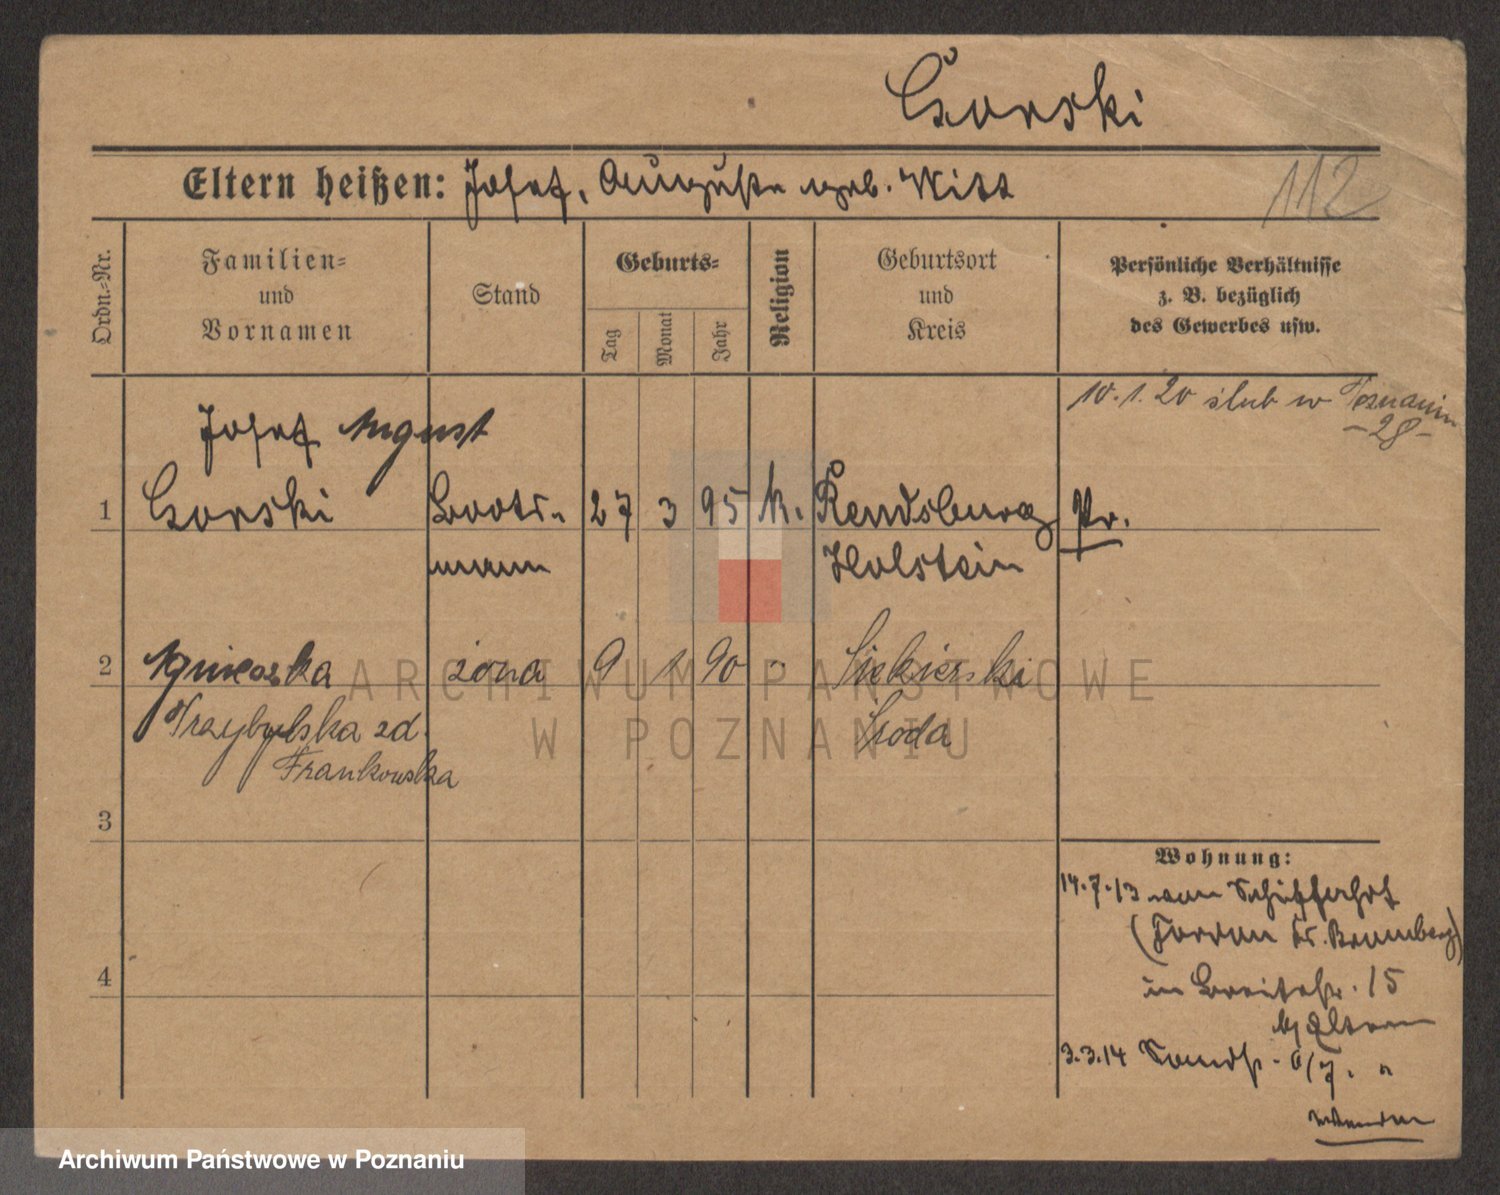 Gorski
Eltern heißen: Josef, Auguste geb. Witt
112
Ordn.=Nr.
Familien=
und
Vornamen
Stand
Geburts=
Tag
Monat
Jahr
Religion
Geburtsort
und
Kreis
Persönliche Verhältnisse
z. B. bezüglich
des Gewerbes usw.
10.1.20 ślub w Poznaniu
-28-
Josef August
1 Gorski Boots- 27 3 95 k. Rendsburg Pr.
mann Holstein
2 Agnieszka żona 9 1 90 " Siekierki
Przybylska zd. Środa
Frankowska
3
4
Wohnung:
14.7.13 von Schiffahrt
(Fordon Kr. Bromberg)
in Breitestr. 15
b/ Eltern
3.3.14 Sandstr. 6/7. "
wenden
ARCHIWUM PAŃSTWOWE
W POZNANIU
Archiwum Państwowe w Poznaniu